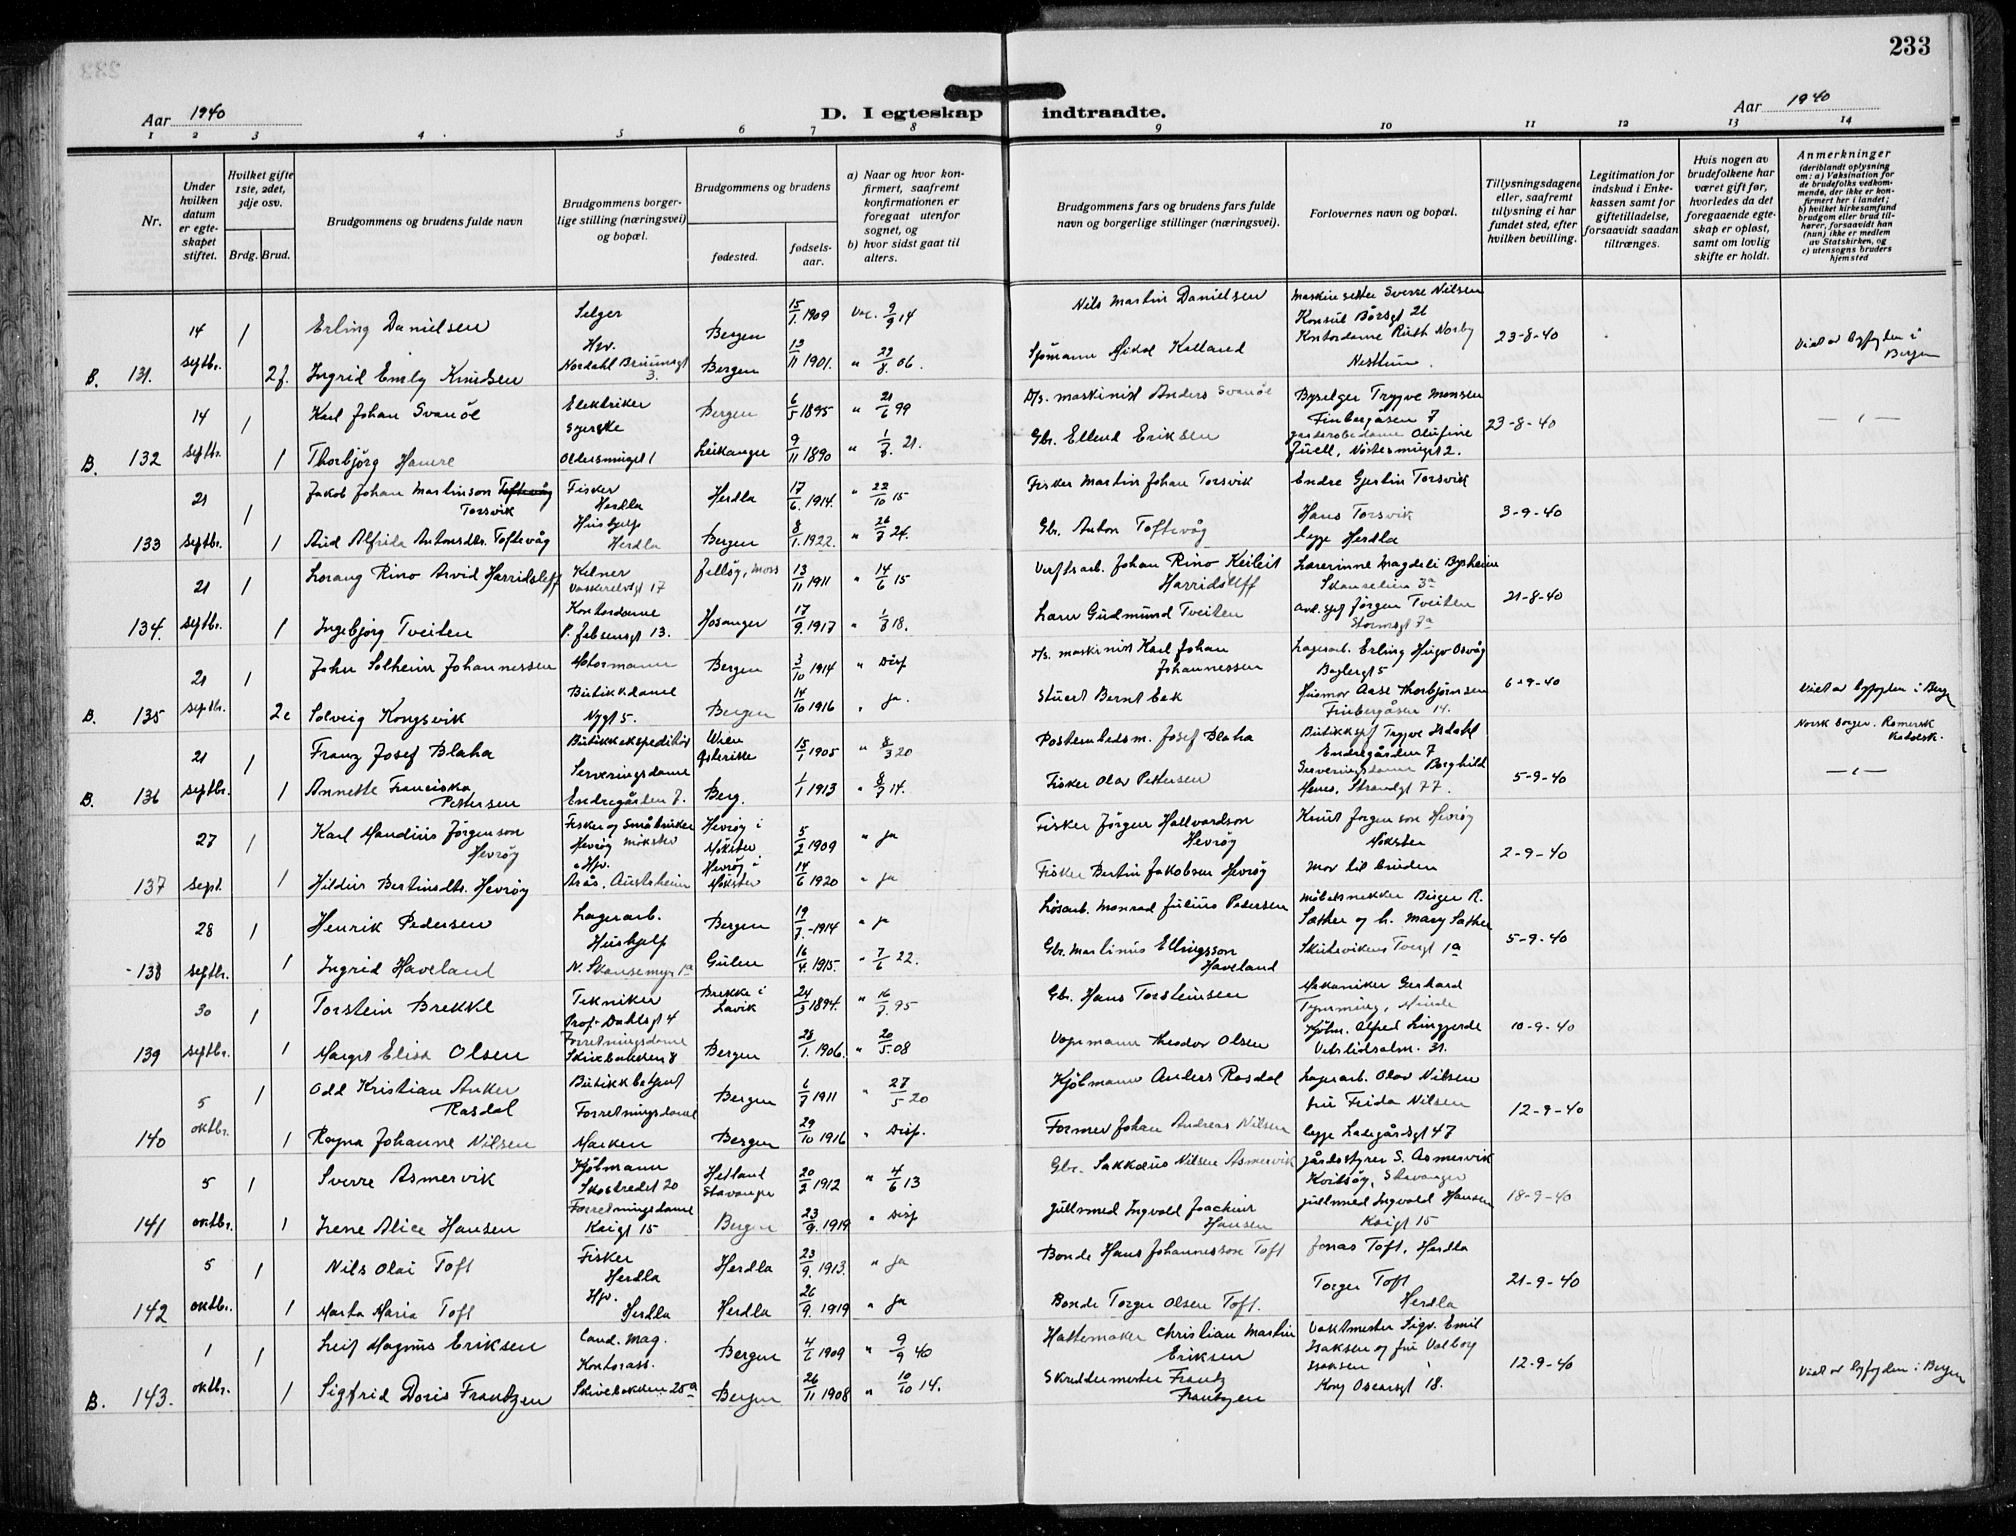 233
Aar 1940
D. I egteskap indtraadte.
Aar 1940
1 2 3 4 5 6 7 8 9 10 11 12 13 14
Nr.
Under hvilken datum er egte-skapet stiftet.
Hvilket gifte 1ste, 2det, 3dje osv.
Brdg. Brud.
Brudgommens og brudens fulde navn
Brudgommens borger-lige stilling (næringsvei) og bopæl.
Brudgommens og brudens
fødested.
fødsels-aar.
a) Naar og hvor kon-firmert, saafremt konfirmationen er foregaat utenfor sognet, og
b) hvor sidst gaat til alters.
Brudgommens fars og brudens fars fulde navn og borgerlige stillinger (næringsvei).
Forlovernes navn og bopæl.
Tillysningsdagene eller, saafremt tillysning ei har fundet sted, efter hvilken bevilling.
Legitimation for indskud i Enke-kassen samt for giftetilladelse, forsaavidt saadan tiltrænges.
Hvis nogen av brudefolkene har været gift før, hvorledes da det foregaaende egte-skap er opløst, samt om lovlig skifte er holdt.
Anmerkninger
(deriblandt oplysning om: a) Vaksination for de brudefolks vedkom-mende, der ikke er kon-firmert her i landet; b) hvilket kirkesamfund brudgom eller brud til-hører, forsaavidt han (hun) ikke er medlem av Statskirken, og c) utensogns bruders hjemsted
B. 131. 14 septbr. 1 Erling Danielsen Selger Bergen 15/1. 1909 Vac. 9/9 14 Nils Martin Danielsen Maskinsetter Sverre Nilsen
Konsul Børsgt 21
2 f. Ingrid Emly Knudsen Hv. Nordahl Bruunsgt 3. Bergen 13/11 1901. " 23/8 06. Sjømann Mikal Kalland Kontordame Ruth Norby
Nesttun 23-8-40 Viet av byfogden i Bergen
B. 132 14 septbr. 1 Karl Johan Svanøe Elektriker Bergen 6/5 1895 " 21/6 99 D/s. maskinist Anders Svanøe Byselger Trygve Monsen
Finbergåsen 7
1 Thorbjørg Hamre Syerske Leikanger 9/11 1890 " 1/7. 21. Gbr. Ellend Eriksen garderobedame Olufine
Juell, Nøstesmuget 2. 23-8-40 — " —
133 21 septbr. 1 Jakob Johan Martinson Toftevåg
Torsvik Fisker Herdla Herdla 17/6. 1914. " 22/10 15 Fisker Martin Johan Torsvik Endre Gjertin Torsvik
1 Aud Alfrida Antonsdtr. Toftevåg Hushjelp Herdla Bergen 8/1. 1922. " 26/7 24. Gbr. Anton Toftevåg Hans Torsvik
begge Herdla 3-9-40
134. 21 septbr. 1 Lorang Rino Arvid Harridsleff Kelner Jelløy, Moss 13/11 1911 " 14/6 15 Verftsarb. Johan Rino Harridsleff Lærerinne Magdeli Bysheim
Skanselien 3a
1 Ingebjørg Tveiten Kontordame P. Jebsensgt 13. Hosanger 17/9. 1917 " 1/8 18. Lars Gudmund Tveiten Jørgen Tveiten
Stormsgt 7a 21-8-40
B. 135 21 septbr. 1 John Solheim Johannessen Motormann Bergen 3/10 1914 " Disp M/s. maskinist Karl Johan
Johannessen Lagerarb. Erling Hugo Osvåg
2 e Solveig Kongsvik Butikkdame Nygt 5. Bergen 14/10 1916 " ja. Stuert Bernt Eek Husmor Aase Thorbjørnsen
Finbergåsen 14. 6-9-40 Viet av byfogden i Bergen
B. 136 21 septbr. 1 Franz Josef Blaha Butikkekspeditør Wien
Østerrike 15/1 1905 " 8/3 20 Postembedsm. Josef Blaha Butikksjef Trygve Isdahl
Endregården 7 Norsk borger. Romersk
katolsk.
1 Annette Franciska
Pettersen Serveringsdame
Endregården 7. Berg. 1/1 1913 " 8/7 14. Fisker Olav Pettersen Serveringsdame Borghild
Strandgt 77. 5-9-40 — " —
137 27 sept. 1 Karl Mandius Jørgenson
Hevrøy Fisker og Småbruker
Hevrøy Møkster Hevrøy i
Møkster 5/2 1909 " ja Fisker Jørgen Hallvardson
Hevrøy Knut Jørgenson Hevrøy
Møkster
1 Hildur Bertinsdtr. Hevrøy Hv.
Arås, Austrheim Hevrøy i
Møkster 14/6 1920 " ja Fisker Bertin Jakobson Hevrøy Mor til bruden 2-9-40
138 28 septbr. 1 Henrik Pedersen Lagerarb. Bergen 19/7. 1914 " ja Løsarb. Monrad Julius Pedersen Møbelsnekker Birger R.
Sæther og h. Mary Sæther
1 Ingrid Haveland Hushjelp
N. Skansemyr 1a Gulen 16/4. 1915. " 7/6 22. Gbr. Martinus Ellingsson
Haveland Skutevikens Tverrgt 1a 5-9-40
139 30 septbr. 1 Torstein Brekke Tekniker
Prof. Dahlsgt 4 Brekke i
Lavik 24/3 1894. " 16/7. 95 Gbr. Hans Torsteinsen Mekaniker Gerhard
Minde
1 Margit Elisa Olsen Forretningsdame
Skivebakken 8 Bergen 28/1. 1906. " 20/5. 08 Vognmann Theodor Olsen Kjøbm. Alfred Lingjerde
Vetrlidsalm. 31. 10-9-40
140 5 oktbr. 1 Odd Kristian Anker
Rasdal Butikkbetjent Bergen 6/7 1911 " 27/5 20 Kjøbmann Anders Rasdal Lagerarb. Olav Nilsen
fru Frida Nilsen
1 Ragna Johanne Nilsen Forretningsdame
Marken Bergen 29/10 1916 " Disp. Former Johan Andreas Nilsen begge Ladegårdsgt 47 12-9-40
141 5 oktbr. 1 Sverre Asmervik Kjøbmann
Skostredet 20 Hetland
Stavanger 20/2 1912 " 4/6 13 Gbr. Sakkæus Nilsen Asmervik gårdsstyrer S. Asmervik
Kvitsøy, Stavanger
1 Irene Alice Hansen Forretningsdame
Kaigt 15 Bergen 23/9. 1919 " Disp gullsmed Ingvald Joachim
Hansen gullsmed Ingvald Hansen
Kaigt 15 18-9-40
142 5 oktbr. 1 Nils Olai Toft Fisker
Herdla Herdla 23/9. 1913. " ja Bonde Hans Johannesson Toft Jonas Toft, Herdla
1 Marta Maria Toft Hv.
Herdla Herdla 26/9. 1919 " ja Bonde Torger Olsen Toft. Torger Toft
Herdla 21-9-40
B. 143. 1 oktbr. 1 Leif Magnus Eriksen Cand. mag. Bergen 4/6 1909 " 9/9 40 Hattemaker Christian Martin
Eriksen Vaktmester Sigv. Emil
Isaksen og fru Valborg
Isaksen
1 Sigfrid Doris Frantzen Kontorass.
Skivebakken 25a Bergen 26/11 1908 " 10/10 14. Skreddermester Frantz
Frantzen Kong Oscarsgt 18. 12-9-40 Viet av byfogden i Bergen